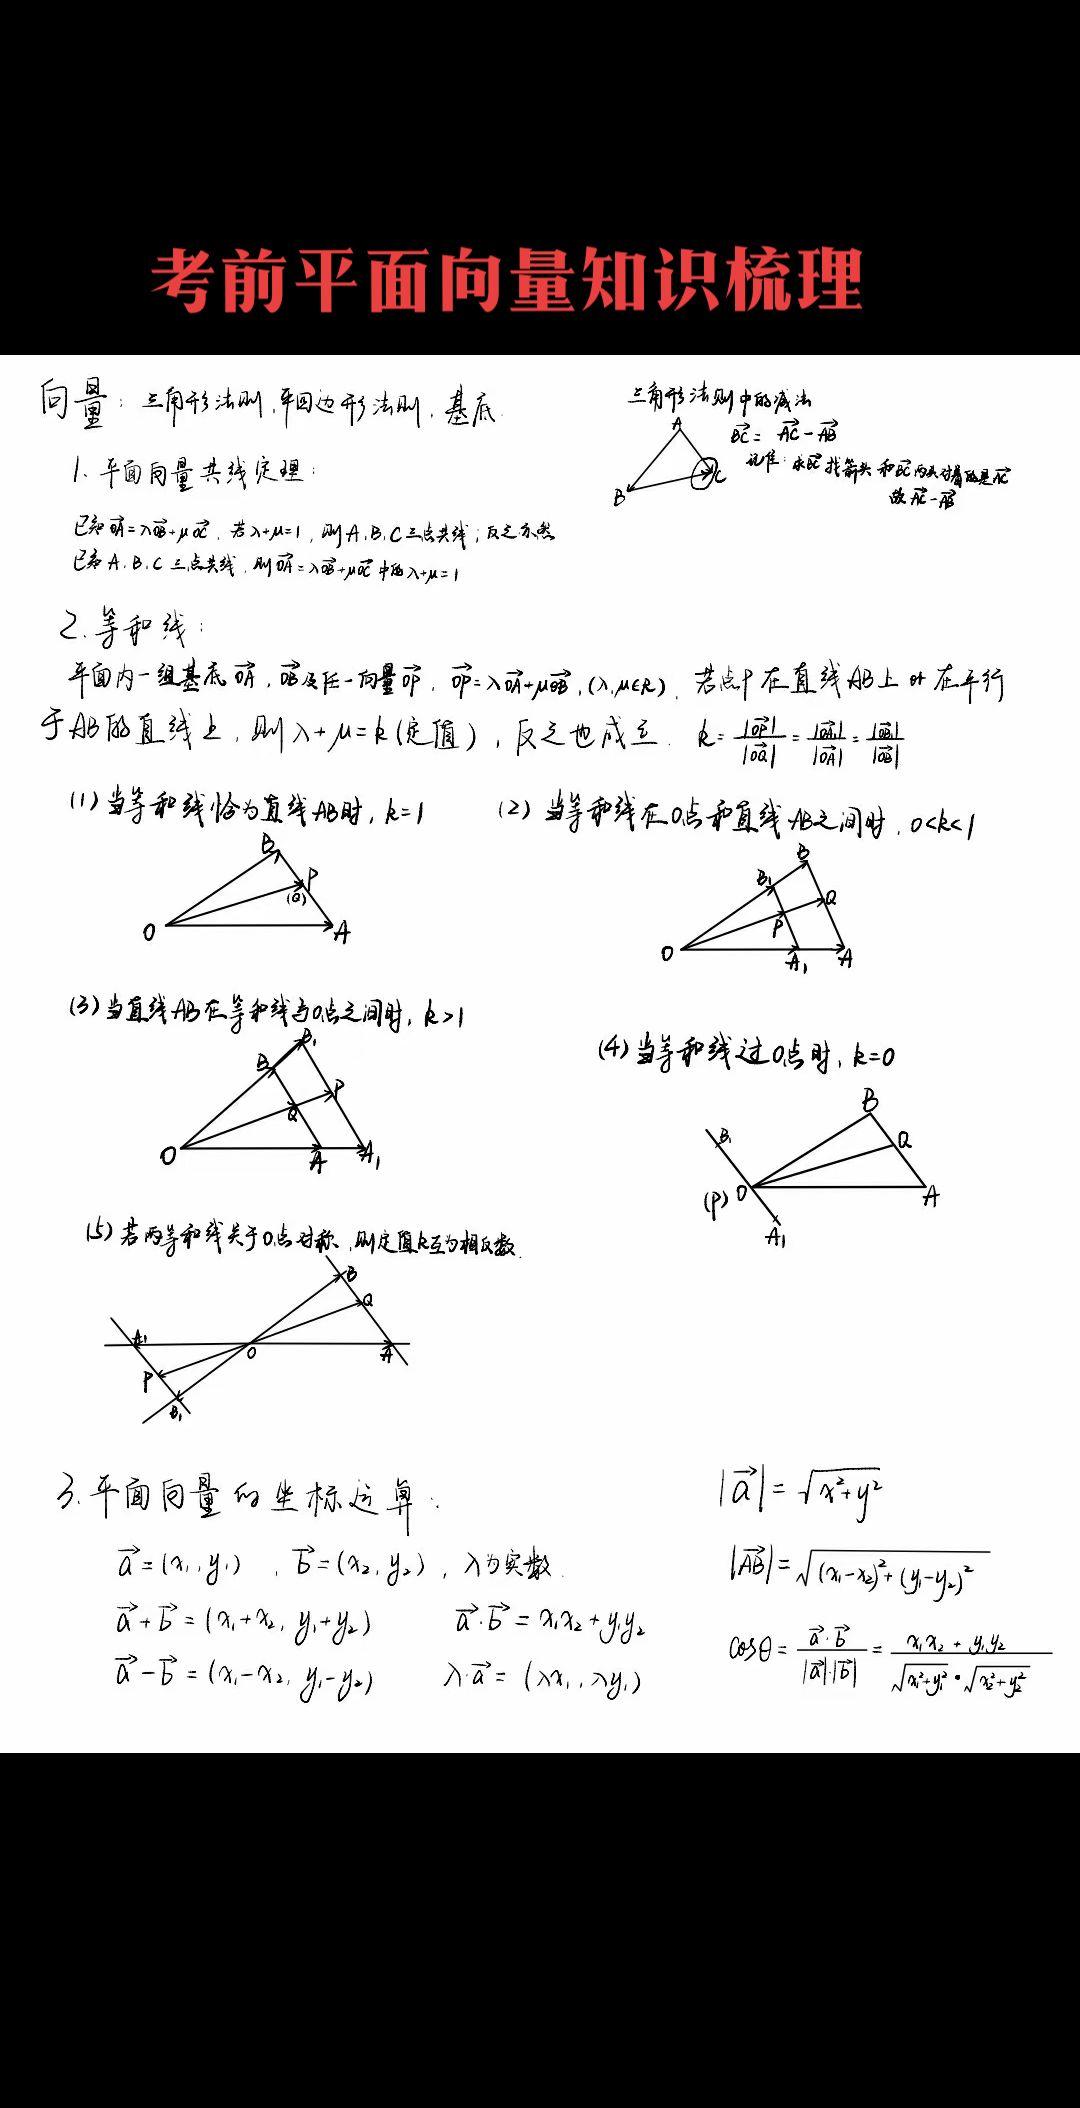 考前平面向量知识梳理
向量：三角形法则，平四边形法则，基底.
三角形法则中的减法
A
B
C
BC→ = AC→ - AB→
记住：求BC→找箭头 和BC→内头对着的是AC→
故AC→-AB→
1. 平面向量共线定理：
已知OA→=λOB→+μOC→，若λ+μ=1，则A、B、C三点共线；反之亦然
已知A、B、C三点共线，则OA→=λOB→+μOC→中的λ+μ=1
2. 等和线：
平面内一组基底OA→，OB→及任一向量OP→，OP→=λOA→+μOB→，(λ,μ∈R)，若点P在直线AB上or在平行
于AB的直线上，则λ+μ=k(定值)，反之也成立. k=|OP→|/|OQ→|=|OA₁→|/|OA→|=|OB₁→|/|OB→|
(1) 当等和线恰为直线AB时，k=1
B
P
(Q)
O
A
(2) 当等和线在O点和直线AB之间时，0<k<1
B
B₁
Q
P
O
A₁
A
(3) 当直线AB在等和线与O点之间时，k>1
B₁
B
P
Q
O
A
A₁
(4) 当等和线过O点时，k=0
B
B₁
Q
(P)
O
A
A₁
(5) 若两等和线关于O点对称，则定值k互为相反数.
B
Q
A₁
O
A
P
B₁
3. 平面向量的坐标运算：
a→=(x₁,y₁)，b→=(x₂,y₂)，λ为实数.
a→+b→=(x₁+x₂, y₁+y₂)
a→·b→=x₁x₂+y₁y₂
a→-b→=(x₁-x₂, y₁-y₂)
λ·a→=(λx₁,λy₁)
|a→|=√(x²+y²)
|AB→|=√((x₁-x₂)²+(y₁-y₂)²)
cosθ=a→·b→/|a→|·|b→|=x₁x₂+y₁y₂/√(x₁²+y₁²)·√(x₂²+y₂²)